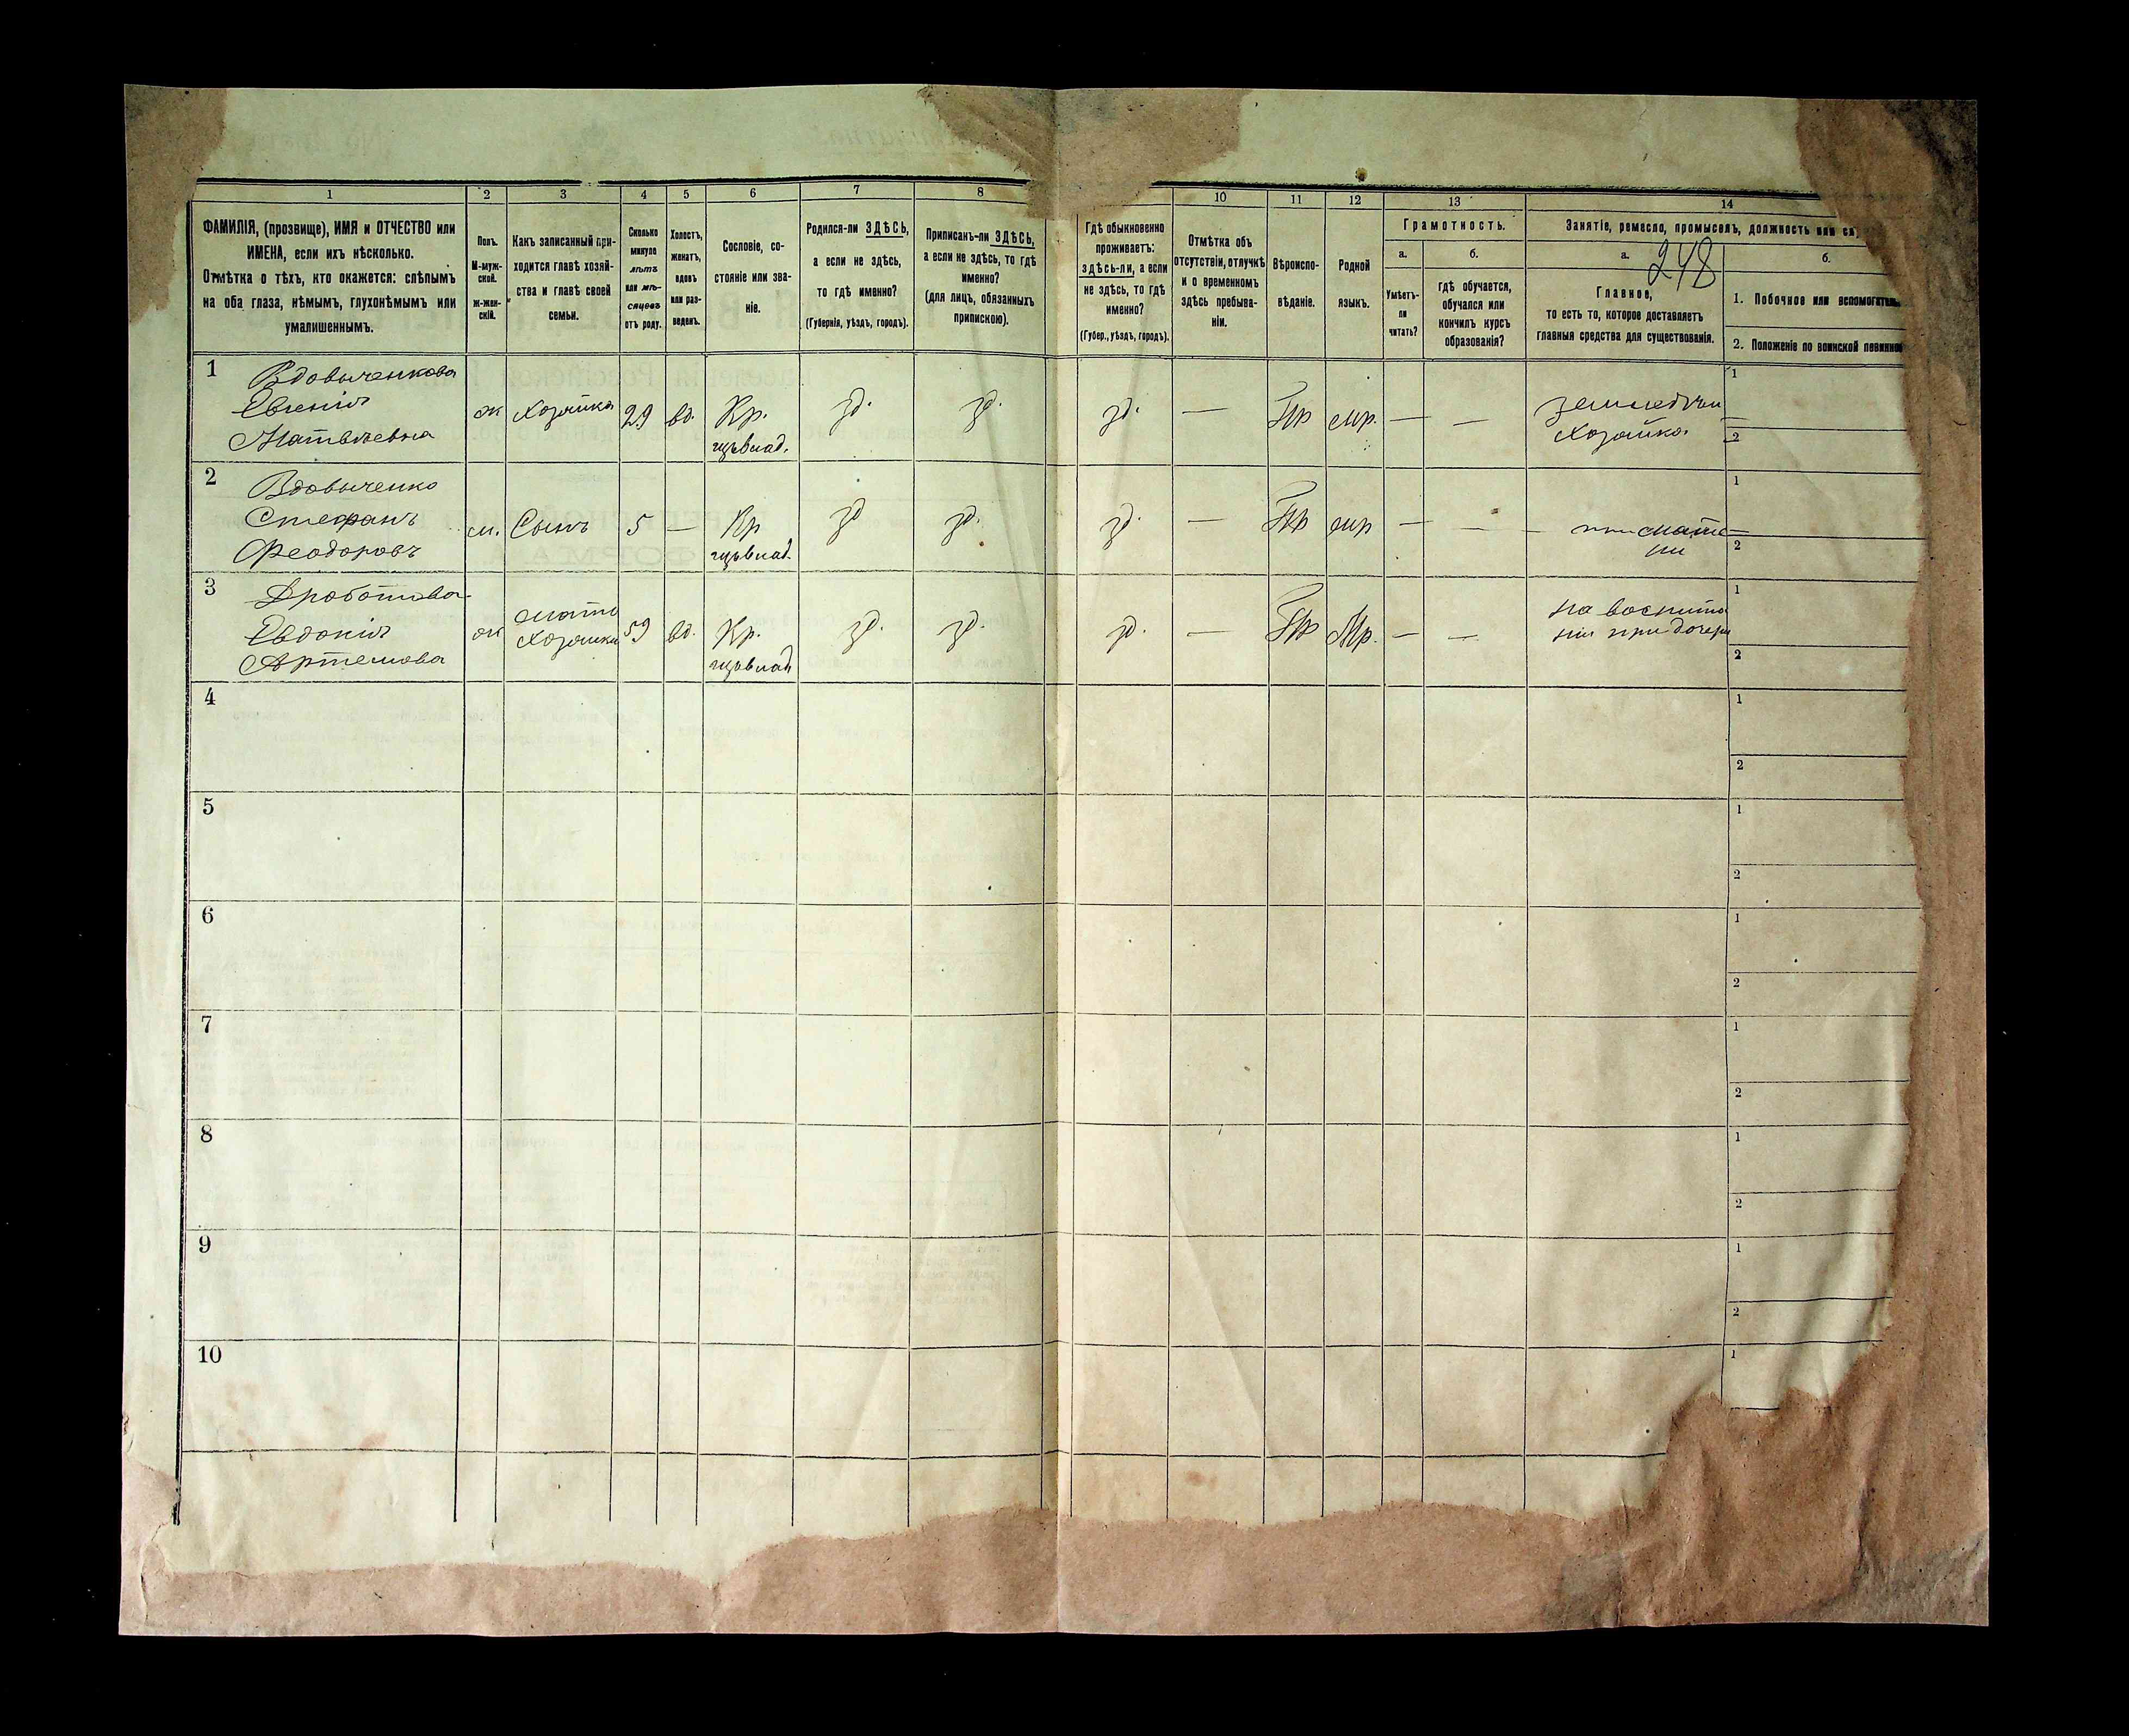 1 2 3 4 5 6 7 8 10 11 12 13 14
ФАМИЛІЯ, (прозвище), ИМЯ и ОТЧЕСТВО или
ИМЕНА, если ихъ нѣсколько.
Отмѣтка о тѣхъ, кто окажется: слѣпымъ
на оба глаза, нѣмымъ, глухонѣмымъ или
умалишеннымъ.
Полъ.
М-муж-
ской.
ж-жен-
скій.
Какъ записанный при-
ходится главѣ хозяй-
ства и главѣ своей
семьи.
Сколько
минуло
лѣтъ
или мѣ-
сяцевъ
отъ роду.
Холостъ,
женатъ,
вдовъ
или раз-
веденъ.
Сословіе, со-
стояніе или зва-
ніе.
Родился-ли ЗДѢСЬ,
а если не здѣсь,
то гдѣ именно?
(Губернія, уѣздъ, городъ).
Приписанъ-ли ЗДѢСЬ,
а если не здѣсь, то гдѣ
именно?
(для лицъ, обязанныхъ
припискою).
Гдѣ обыкновенно
проживаетъ:
здѣсь-ли, а если
не здѣсь, то гдѣ
именно?
(Губер., уѣздъ, городъ).
Отмѣтка объ
отсутствіи, отлучкѣ
и о временномъ
здѣсь пребыва-
ніи.
Вѣроиспо-
вѣданіе.
Родной
языкъ.
Грамотность.
а.
Умѣетъ-
ли
читать?
б.
гдѣ обучается,
обучался или
кончилъ курсъ
образованія?
Занятіе, ремесло, промыселъ, должность или
248
а.
Главное,
то есть то, которое доставляетъ
главныя средства для существованія.
б.
1. Побочное или
2. Положеніе по воинской
1
Вдовыченкова
Евгенія
Матвѣевна
ж Хозяйка 29 вд. Кр.
зд. зд. зд. — Пр мр. — —
Хозяйка
1
2
2
Вдовыченко
Стефанъ
Феодоровъ
м. Сынъ 5 — Кр
зд зд. зд. — Пр мр — —
при мате
ри
1
2
3
Дроботова
Евдокія
Артемова
ж мать
Хозяйки 59 вд. Кр.
зд. зд. зд. — Пр Мр. — —
на воспита
ніи при дочери
1
2
4
1
2
5
1
2
6
1
2
7
1
2
8
1
2
9
1
2
10
1